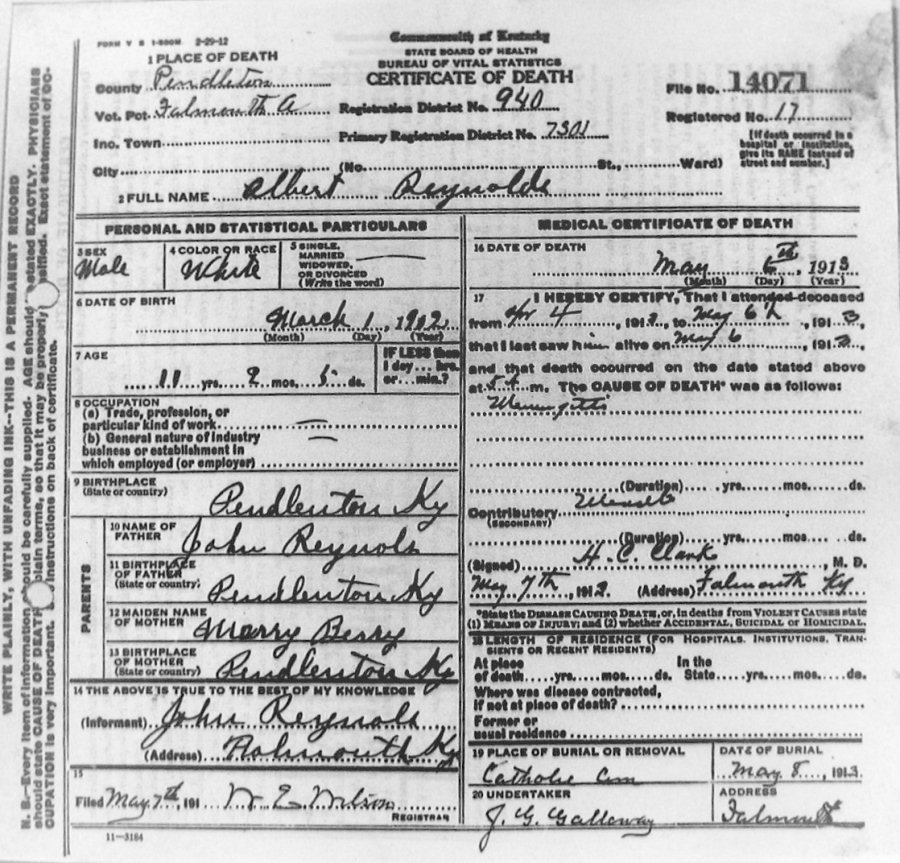 FORM V S 1-500M 2-29-12
Commonwealth of Kentucky
STATE BOARD OF HEALTH
BUREAU OF VITAL STATISTICS
CERTIFICATE OF DEATH
1 PLACE OF DEATH
County Pendleton
Vot. Pct. Falmouth A
Inc. Town
City (No. St., Ward)
Registration District No. 940
Primary Registration District No. 7301
File No. 14071
Registered No. 17
[If death occurred in a
hospital or institution,
give its NAME instead of
street and number.]
2 FULL NAME Albert Reynolds
PERSONAL AND STATISTICAL PARTICULARS
3 SEX
Male
4 COLOR OR RACE
White
5 SINGLE,
MARRIED
WIDOWED,
OR DIVORCED
(Write the word)
6 DATE OF BIRTH
March 1, 1902
(Month) (Day) (Year)
7 AGE
11 yrs. 2 mos. 5 ds.
IF LESS than
1 day ... hrs.
or ... min.?
8 OCCUPATION
(a) Trade, profession, or
particular kind of work —
(b) General nature of industry —
business or establishment in
which employed (or employer)
9 BIRTHPLACE
(State or country)
Pendlenton Ky
PARENTS
10 NAME OF
FATHER
John Reynols
11 BIRTHPLACE
OF FATHER
(State or country)
Pendlenton Ky
12 MAIDEN NAME
OF MOTHER
Marry Berry
13 BIRTHPLACE
OF MOTHER
(State or country)
Pendlenton Ky
14 THE ABOVE IS TRUE TO THE BEST OF MY KNOWLEDGE
(Informant) John Reynols
(Address) Falmouth Ky
15
Filed May 7th, 191 N. E. Wilson
REGISTRAR
11-3184
MEDICAL CERTIFICATE OF DEATH
16 DATE OF DEATH
May 6th, 1913
(Month) (Day) (Year)
17 I HEREBY CERTIFY, That I attended deceased
from Apr 4, 1913, to May 6th, 1913,
that I last saw him alive on May 6, 1913,
and that death occurred on the date stated above
at m. The CAUSE OF DEATH* was as follows:
(Duration) yrs. mos. ds.
Contributory
(SECONDARY)
(Duration) yrs. mos. ds.
(Signed) H. C. Clark, M. D.
May 7th, 1913 (Address) Falmouth Ky
*State the DISEASE CAUSING DEATH, or, in deaths from VIOLENT CAUSES state
(1) MEANS OF INJURY; and (2) whether ACCIDENTAL, SUICIDAL or HOMICIDAL.
18 LENGTH OF RESIDENCE (FOR HOSPITALS, INSTITUTIONS, TRAN-
SIENTS OR RECENT RESIDENTS)
At place
of death yrs. mos. ds.
In the
State yrs. mos. ds.
Where was disease contracted,
if not at place of death?
Former or
usual residence
19 PLACE OF BURIAL OR REMOVAL
Catholic Cem
DATE OF BURIAL
May 8, 1913
20 UNDERTAKER
J. G. Galloway
ADDRESS
Falmouth
WRITE PLAINLY, WITH UNFADING INK--THIS IS A PERMANENT RECORD
N. B.--Every item of information should be carefully supplied. AGE should stated EXACTLY. PHYSICIANS
should state CAUSE OF DEATH plain terms, so that it may be properly Exact statement of OC-
CUPATION is very important. Instructions on back of certificate.